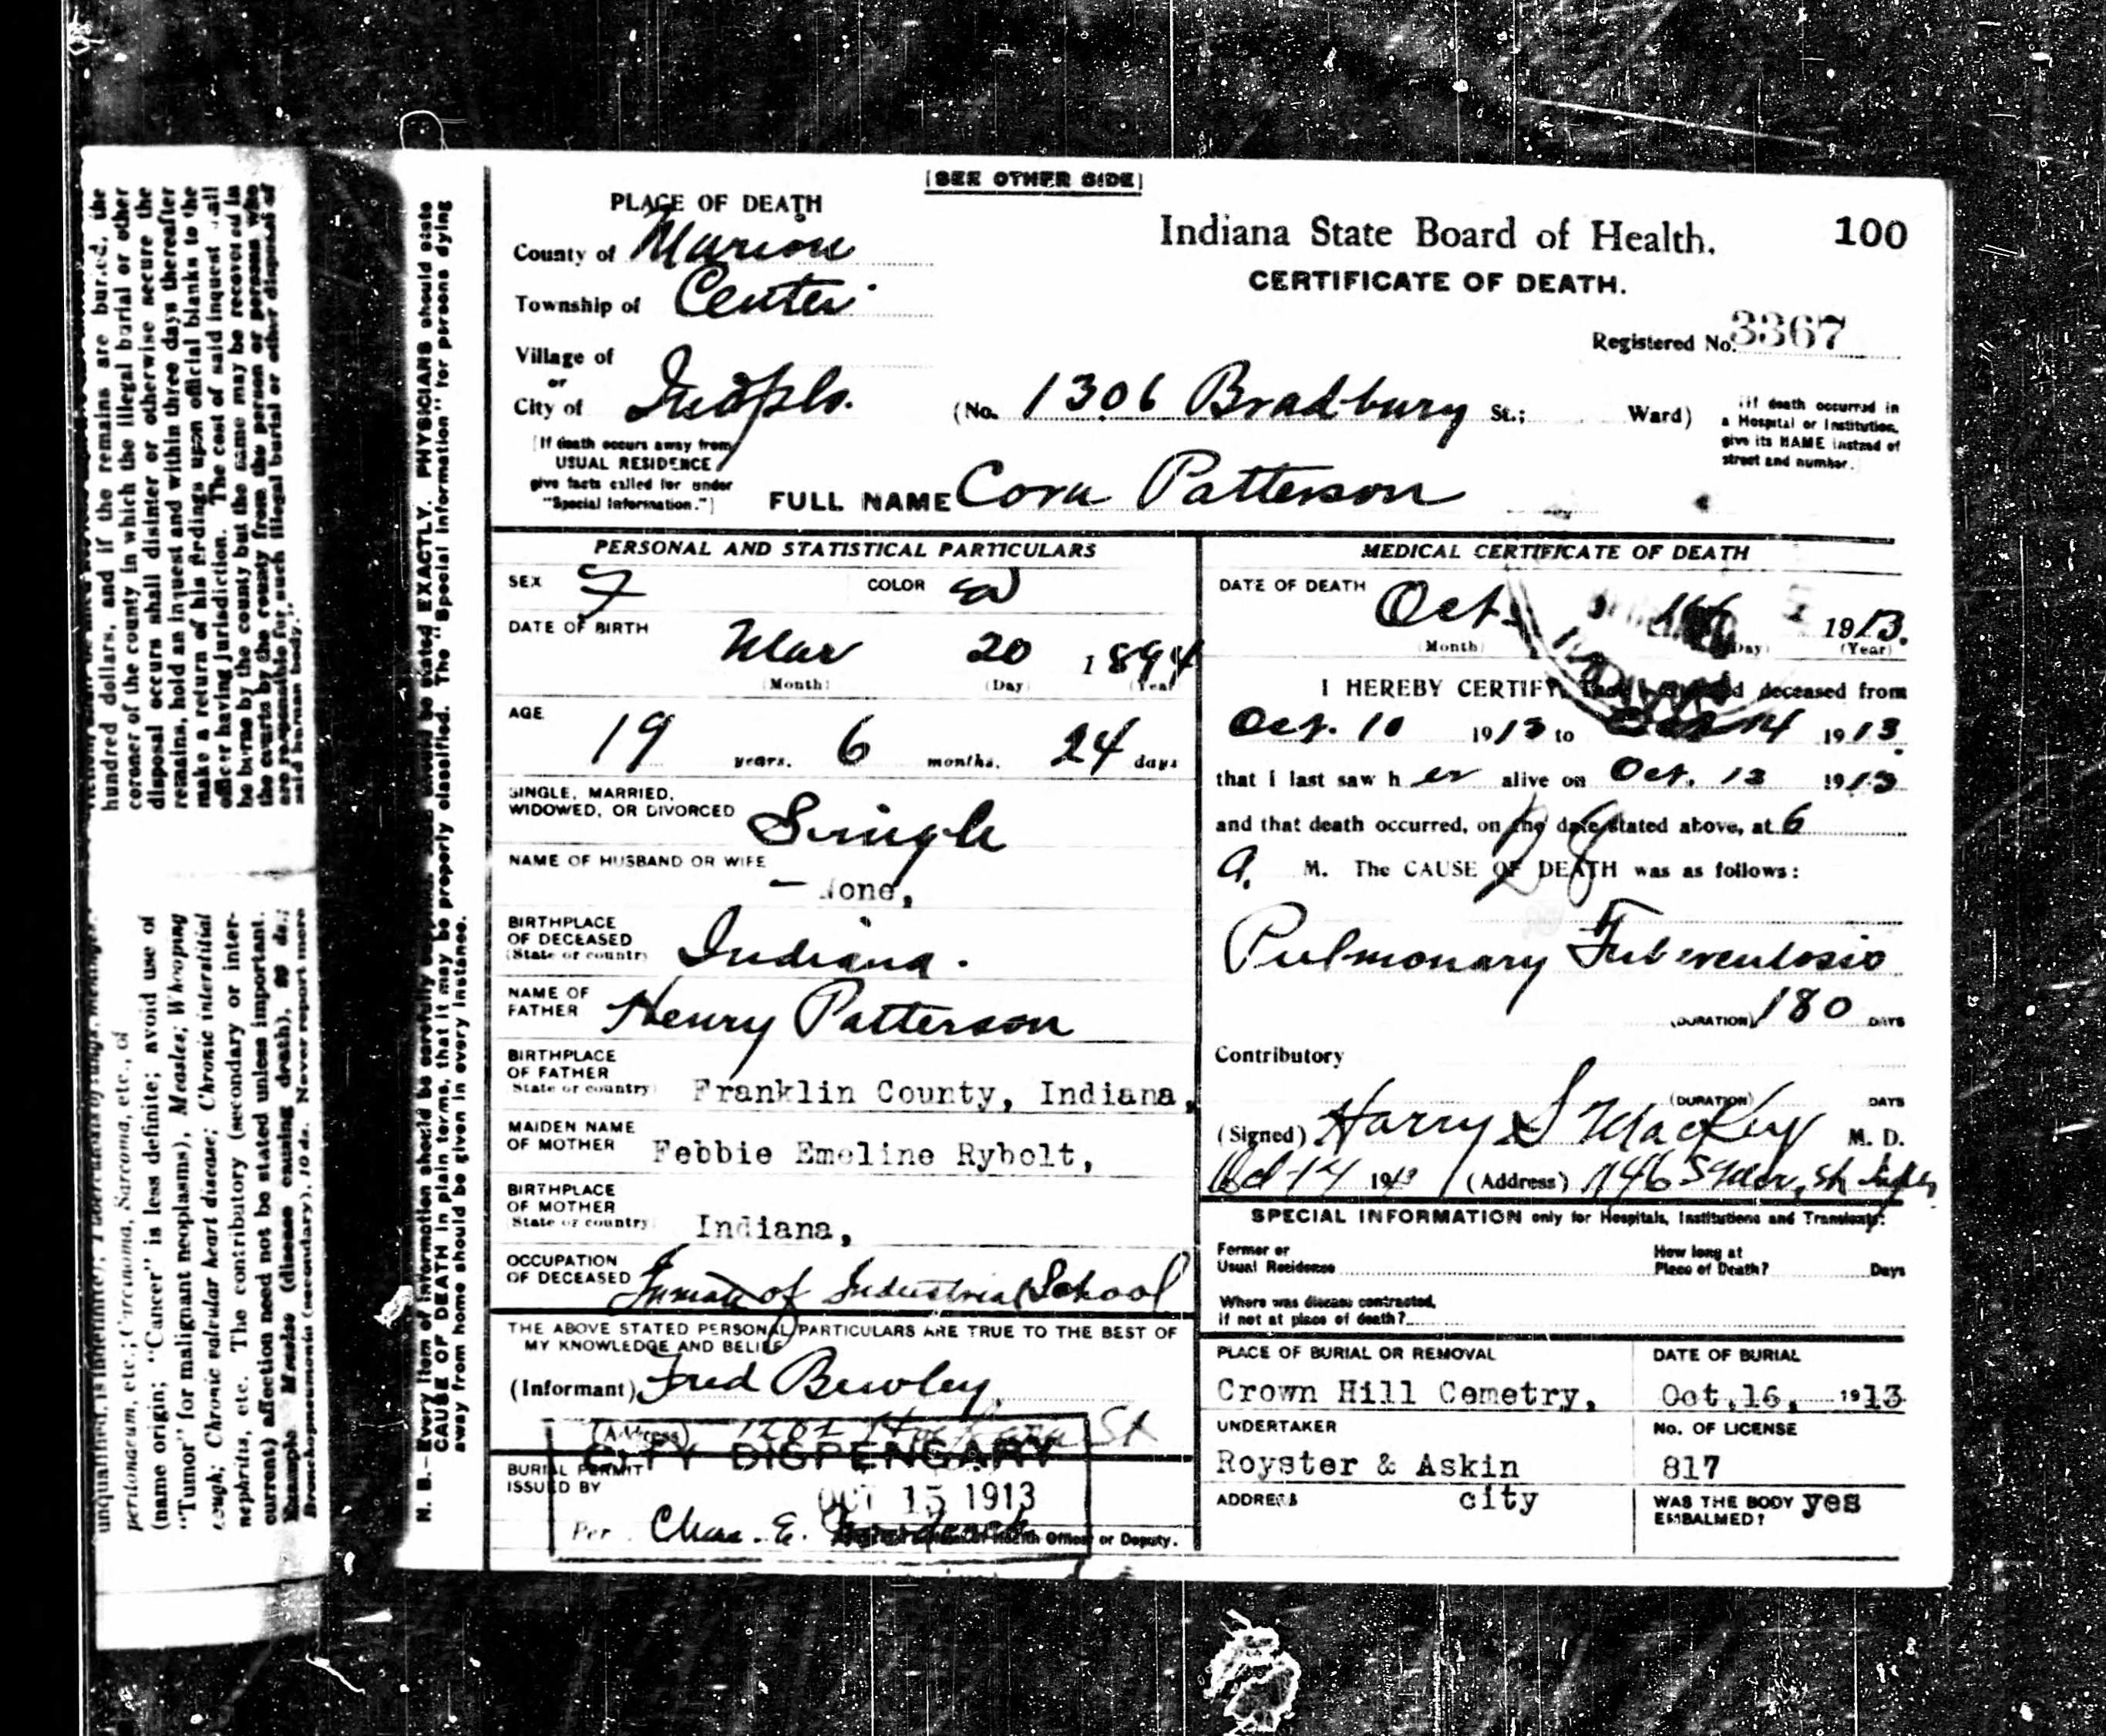 [SEE OTHER SIDE]
PLACE OF DEATH
County of Marion
Township of Center
Village of
or
City of Indpls.
(No. 1306 Bradbury St.; Ward)
[If death occurs away from
USUAL RESIDENCE
give facts called for under
"Special Information."]
Indiana State Board of Health.
100
CERTIFICATE OF DEATH.
Registered No. 3367
[If death occurred in
a Hospital or Institution,
give its NAME instead of
street and number.
FULL NAME Cora Patterson
PERSONAL AND STATISTICAL PARTICULARS
SEX F COLOR W
DATE OF BIRTH
Mar 20 1894
(Month) (Day) (Year)
AGE
19 years. 6 months. 24 days
SINGLE, MARRIED,
WIDOWED, OR DIVORCED Single
NAME OF HUSBAND OR WIFE
None,
BIRTHPLACE
OF DECEASED
(State or country) Indiana.
NAME OF
FATHER Henry Patterson
BIRTHPLACE
OF FATHER
State or country) Franklin County, Indiana,
MAIDEN NAME
OF MOTHER Febbie Emeline Rybolt,
BIRTHPLACE
OF MOTHER
State or country) Indiana,
OCCUPATION
OF DECEASED Inmate of Industrial School
THE ABOVE STATED PERSONAL PARTICULARS ARE TRUE TO THE BEST OF
MY KNOWLEDGE AND BELIEF
(Informant) Fred Bewley
(Address) 1202 St
CITY DISPENSARY
BURIAL PERMIT
ISSUED BY
OCT 15 1913
Per Chas. E.
Health Officer or Deputy.
MEDICAL CERTIFICATE OF DEATH
DATE OF DEATH Oct. 1913.
(Month) (Day) (Year)
I HEREBY CERTIFY deceased from
Oct. 10 1913 to Oct 14 1913.
that I last saw her alive on Oct. 13 1913
and that death occurred, on the date stated above, at 6
a. M. The CAUSE OF DEATH was as follows:
Pulmonary Tuberculosis
(DURATION) 180 DAYS
Contributory
(DURATION) DAYS
(Signed) Harry S Mackey M. D.
Oct 14 1913 (Address)
SPECIAL INFORMATION only for Hospitals, Institutions and Transients:
Former or
Usual Residence
How long at
Place of Death? Days
Where was disease contracted,
if not at place of death?
PLACE OF BURIAL OR REMOVAL
Crown Hill Cemetry,
DATE OF BURIAL
Oct, 16, 1913
UNDERTAKER
Royster & Askin
No. OF LICENSE
817
ADDRESS city
WAS THE BODY
EMBALMED? yes
N. B.—Every item of information should be carefully should be stated EXACTLY. PHYSICIANS should state
CAUSE OF DEATH in plain terms, that it may be properly classified. The "Special Information" for persons dying
away from home should be given in every instance.
hundred dollars, and if the remains are buried, the
coroner of the county in which the illegal burial or other
disposal occurs shall disinter or otherwise secure the
remains, hold an inquest and within three days thereafter
make a return of his findings upon official blanks to the
officer having jurisdiction. The cost of said inquest shall
be borne by the county but the same may be recovered in
the courts by the county from the person or persons who
are responsible for such illegal burial or other disposal of
said human body."
peritonaeum, etc.; Carcinoma, Sarcoma, etc., of
(name origin; "Cancer" is less definite; avoid use of
"Tumor" for malignant neoplasms), Measles; Whooping
cough; Chronic valvular heart disease; Chronic interstitial
nephritis, etc. The contributory (secondary or inter-
current) affection need not be stated unless important.
Example Measles (disease causing death), 29 ds.;
Bronchopneumonia (secondary), 10 ds. Never report mere